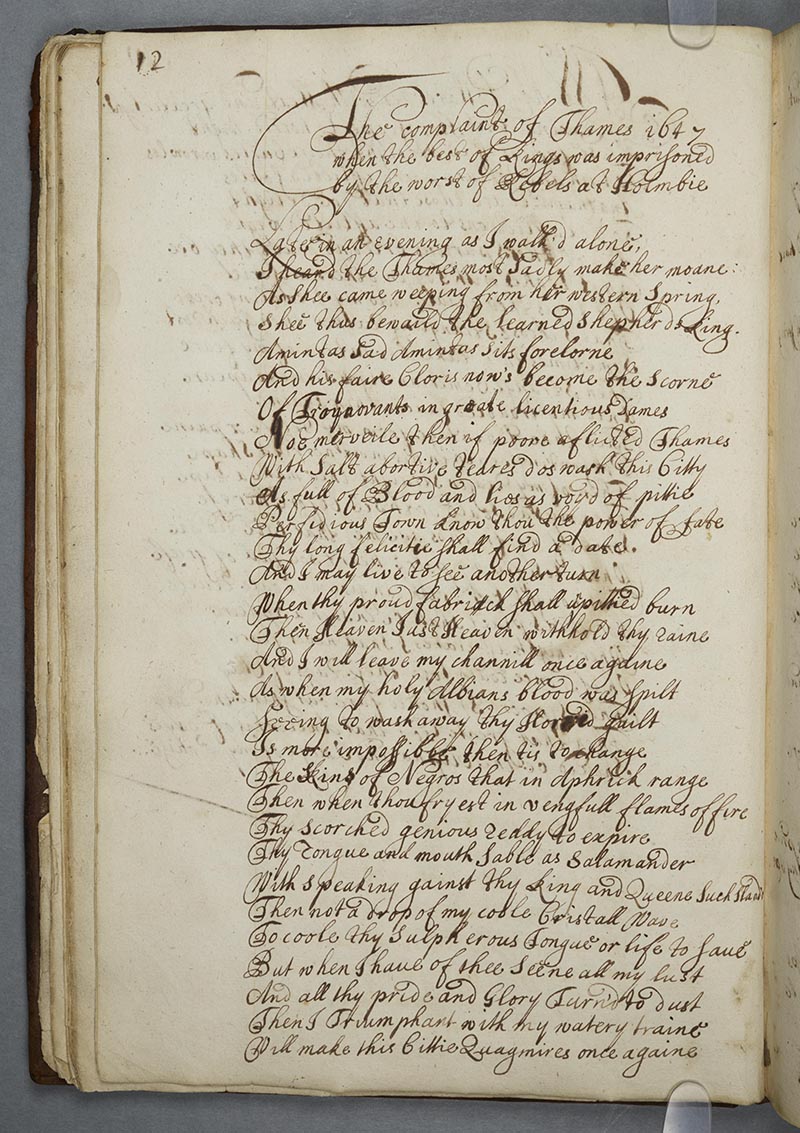 12
The complaint of Thames 1647
when the best of Kings was imprisoned
by the worst of Rebels at Holmbie
Late in an evening as I walk'd alone,
I heard the Thames most Sadly make her moane:
As Shee came weeping from her western Spring,
Shee thus bewaild the learned Shepherds King.
Amintas Sad Amintas Sits forelorne
And his faire Cloris now's become the Scorne
Of Troynovants ingreate licentious Dames
Noe merveile then if poore aflicted Thames
With Salt abortive teares dos wash this Citty
As full of Blood and lies as voyd of pittie
Perfidious Town know thou the power of fate
Thy long felicitie shall find a date.
And I may live to See another turn
When thy proud fabrick shall upitied burn
Then Heaven Just Heaven withhold thy raine
And I will leave my channill once againe
As when my holy Albians blood was Spilt
Seeing to wash away thy Horrid guilt
Is more impossible then tis to change
The Skins of Negros that in Aphrick range
Then when thou fryest in vengfull flames of fire
Thy Scorched genious reddy to expire
Thy Tongue and mouth Sable as Salamander
With Speaking gainst thy King and Queene Such
Then not a drop of my coole Cristall Wave
To coole thy Sulpherous Tongue or life to Save
But when I have of thee Seene all my lust
And all thy pride and Glory Turn'd to dust
Then I Triumphant with my watery traine
Will make this Cittie Quagmires once againe